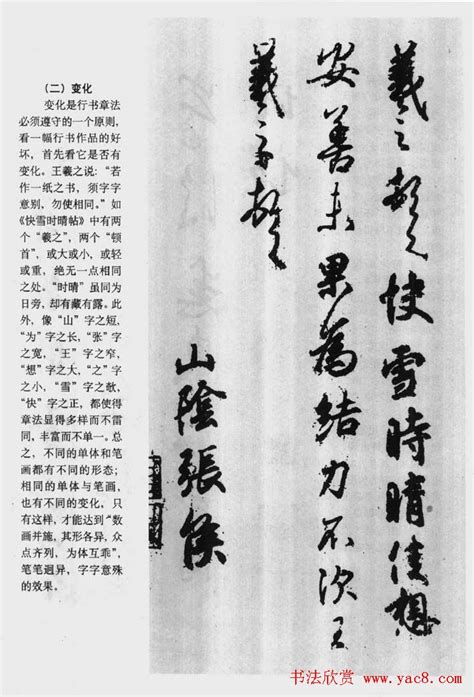 (二)变化
变化是行书章法
必须遵守的一个原则,
看一幅行书作品的好
坏,首先看它是否有
变化。王羲之说:“若
作一纸之书,须字字
意别,勿使相同。”如
《快雪时晴帖》中有两
个“羲之”,两个“顿
首”,或大或小,或轻
或重,绝无一点相同
之处。“时晴”虽同为
日旁,却有藏有露。此
外,像“山”字之短,
“为”字之长,“张”字
之宽,“王”字之窄,
“想”字之大,“之”字
之小,“雪”字之欹,
“快”字之正,都使得
章法显得多样而不雷
同,丰富而不单一。总
之,不同的单体和笔
画都有不同的形态;
相同的单体与笔画,
也有不同的变化,只
有这样,才能达到“数
画并施,其形各异,众
点齐列,为体互乖”,
笔笔迥异,字字意殊
的效果。
羲之頓首快雪時晴佳想
安善未果為結力不次王
羲之頓首
山陰張侯
书法欣赏
www.yac8.com